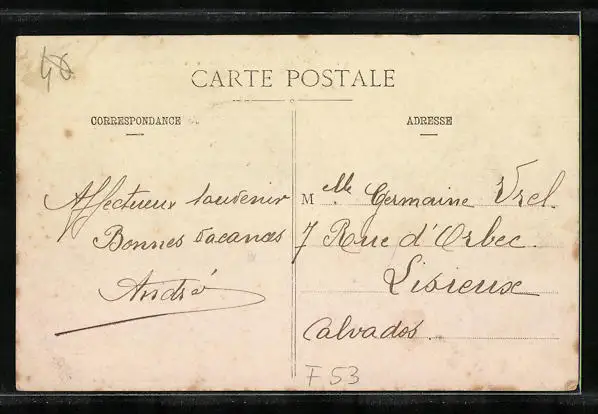 40
CARTE POSTALE
CORRESPONDANCE
ADRESSE
Affectueux Souvenir
Bonnes Vacances
André
Mlle. Germaine Urel.
7 Rue d'Orbec.
Lisieux
Calvados.
F 53